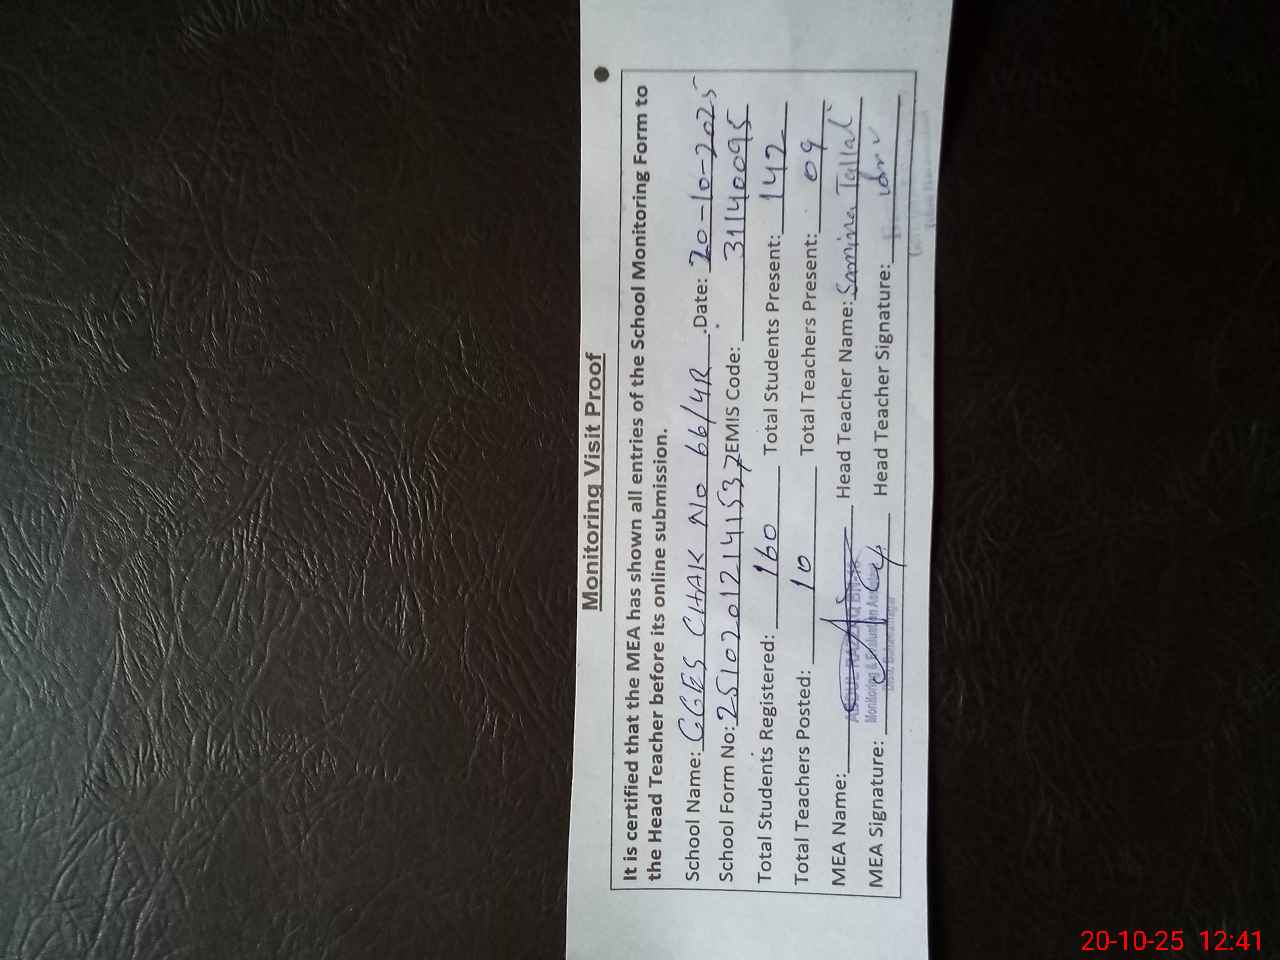 Monitoring Visit Proof
It is certified that the MEA has shown all entries of the School Monitoring Form to
the Head Teacher before its online submission.
School Name: GGES CHAK No 66/4R .Date: 20-10-2025
School Form No: 25102012141537 EMIS Code: 31140095
Total Students Registered: 160 Total Students Present: 142
Total Teachers Posted: 10 Total Teachers Present: 09
MEA Name: Head Teacher Name: Samina Tallat
Monitoring & Evaluation
MEA Signature: Head Teacher Signature:
20-10-25 12:41